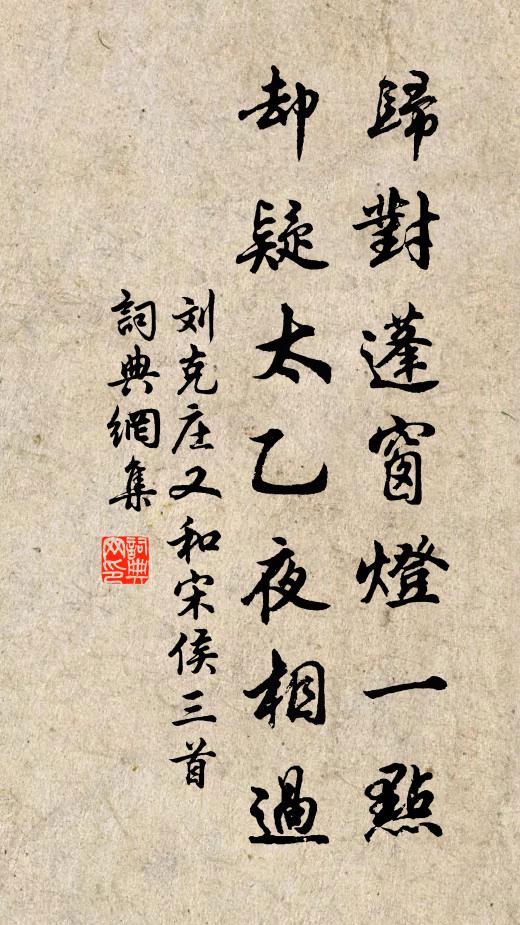 歸對蓬窗燈一點
却疑太乙夜相過
刘克庄又和宋侯三首
詞典網集
詞典网印